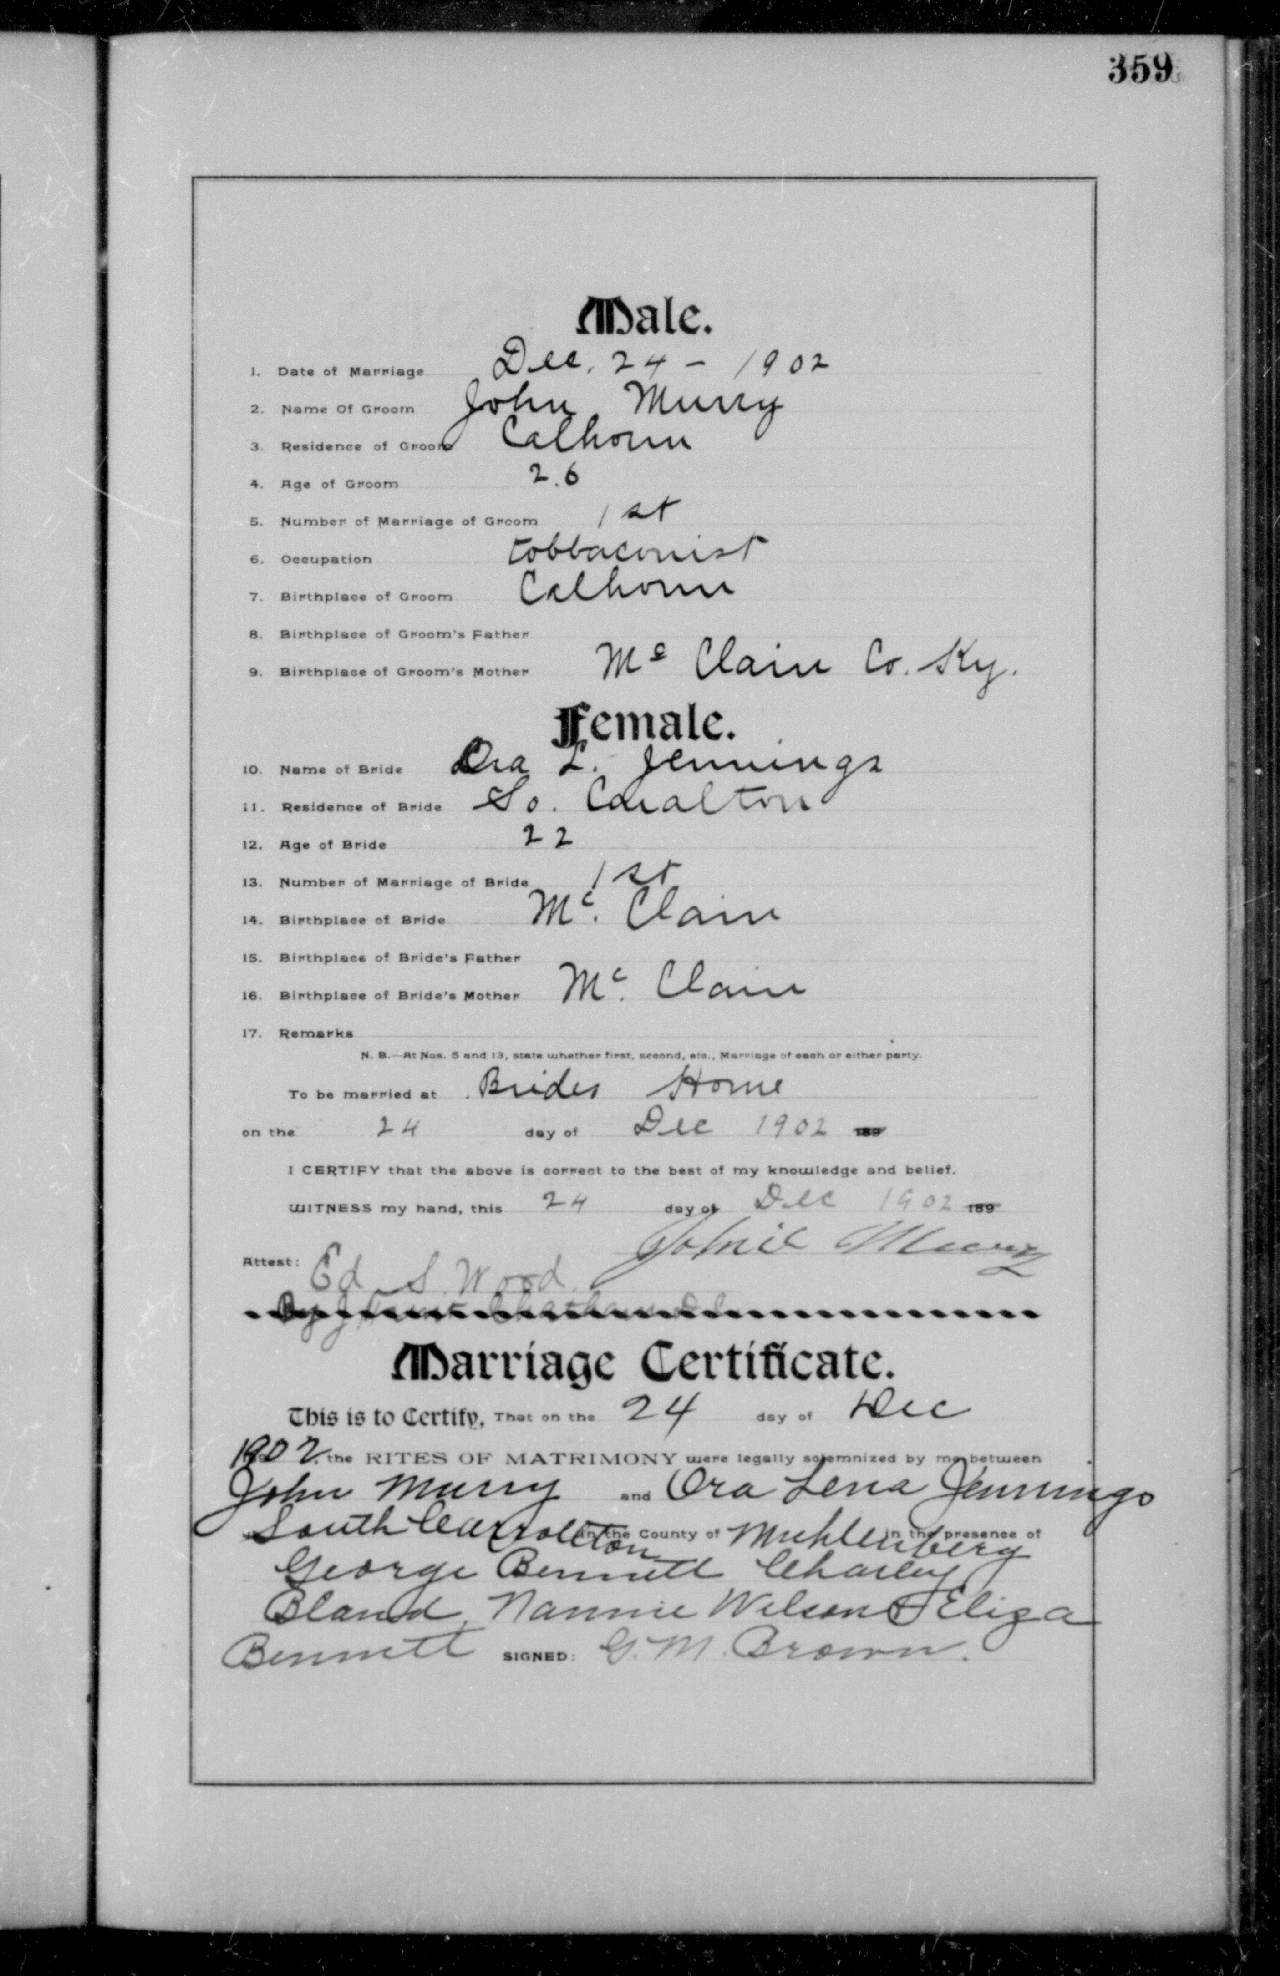 359
Male.
1. Date of Marriage Dec. 24 - 1902
2. Name Of Groom John Murry
3. Residence of Groom Calhoun
4. Age of Groom 26
5. Number of Marriage of Groom 1st
6. Occupation tobbaconist
7. Birthplace of Groom Calhoun
8. Birthplace of Groom's Father
9. Birthplace of Groom's Mother Mc Clain Co. Ky.
Female.
10. Name of Bride Ora L. Jennings
11. Residence of Bride So. Caralton
12. Age of Bride 22
13. Number of Marriage of Bride 1st
14. Birthplace of Bride Mc. Clain
15. Birthplace of Bride's Father
16. Birthplace of Bride's Mother Mc. Clain
17. Remarks
N. B.—At Nos. 5 and 13, state whether first, second, etc., Marriage of each or either party.
To be married at Brides Home
on the 24 day of Dec 1902 189
I CERTIFY that the above is correct to the best of my knowledge and belief.
WITNESS my hand, this 24 day of Dec 1902 189
Johnie Murry
Attest: Ed S. Wood
By J Chatham D.C.
Marriage Certificate.
This is to Certify, That on the 24 day of Dec
1902 the RITES OF MATRIMONY were legally solemnized by me between
John Murry and Ora Lena Jennings
South Carrollton in the County of Muhlenberg in the presence of
George Bennett Charley
Bland, Nannie Wilson & Eliza
Bennett SIGNED: G. M. Brown.